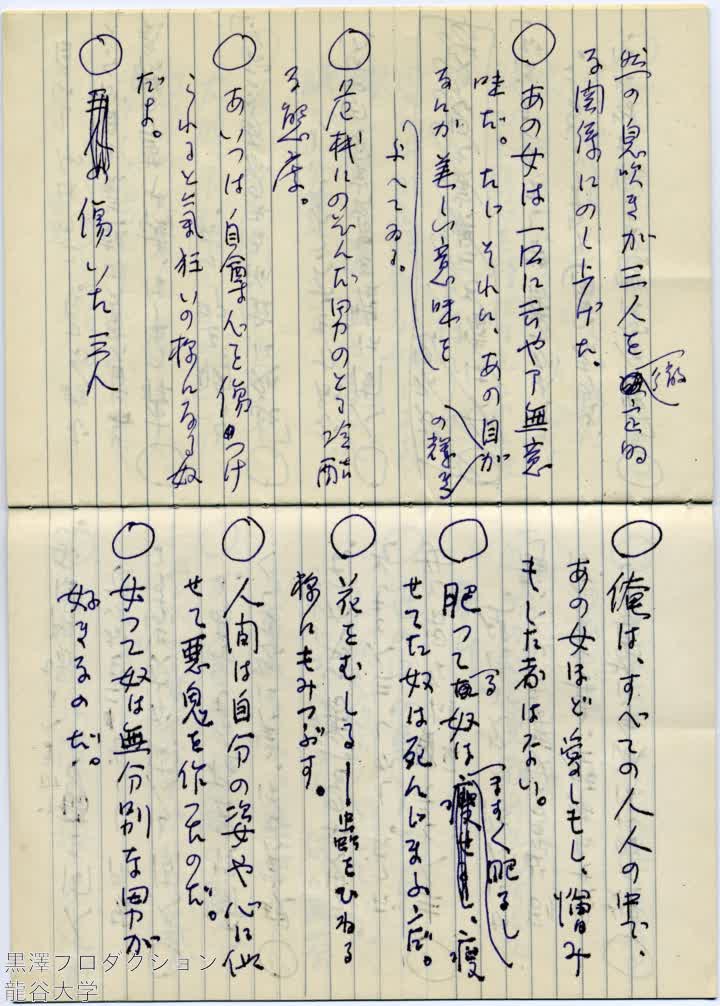 然の息吹きが三人を運定的
徹
る関係にのし上げた。
○あの女は一口に云やア無意
味だ。たゞそれに、あの目が
の輝き
なにか美しい意味を
与へてゐる。
○危機にのぞんだ男のとる冷酷
な態度。
○あいつは自尊心を傷つけ
られると氣狂いの様になる奴
だよ。
○傷いた三人
○俺は、すべての人人の中で、
あの女ほど愛しもし、憎み
もした者はない。
○肥つてる奴は
ますく肥るし
痩
せてた奴は死んじまふんだ。
○花をむしる――蟲をひねる
様にもみつぶす。
○人間は自分の姿や心に似
せて悪鬼を作つたのだ。
○女つて奴は無分別な男が
好きなのだ。
黒澤プロダクション
龍谷大学